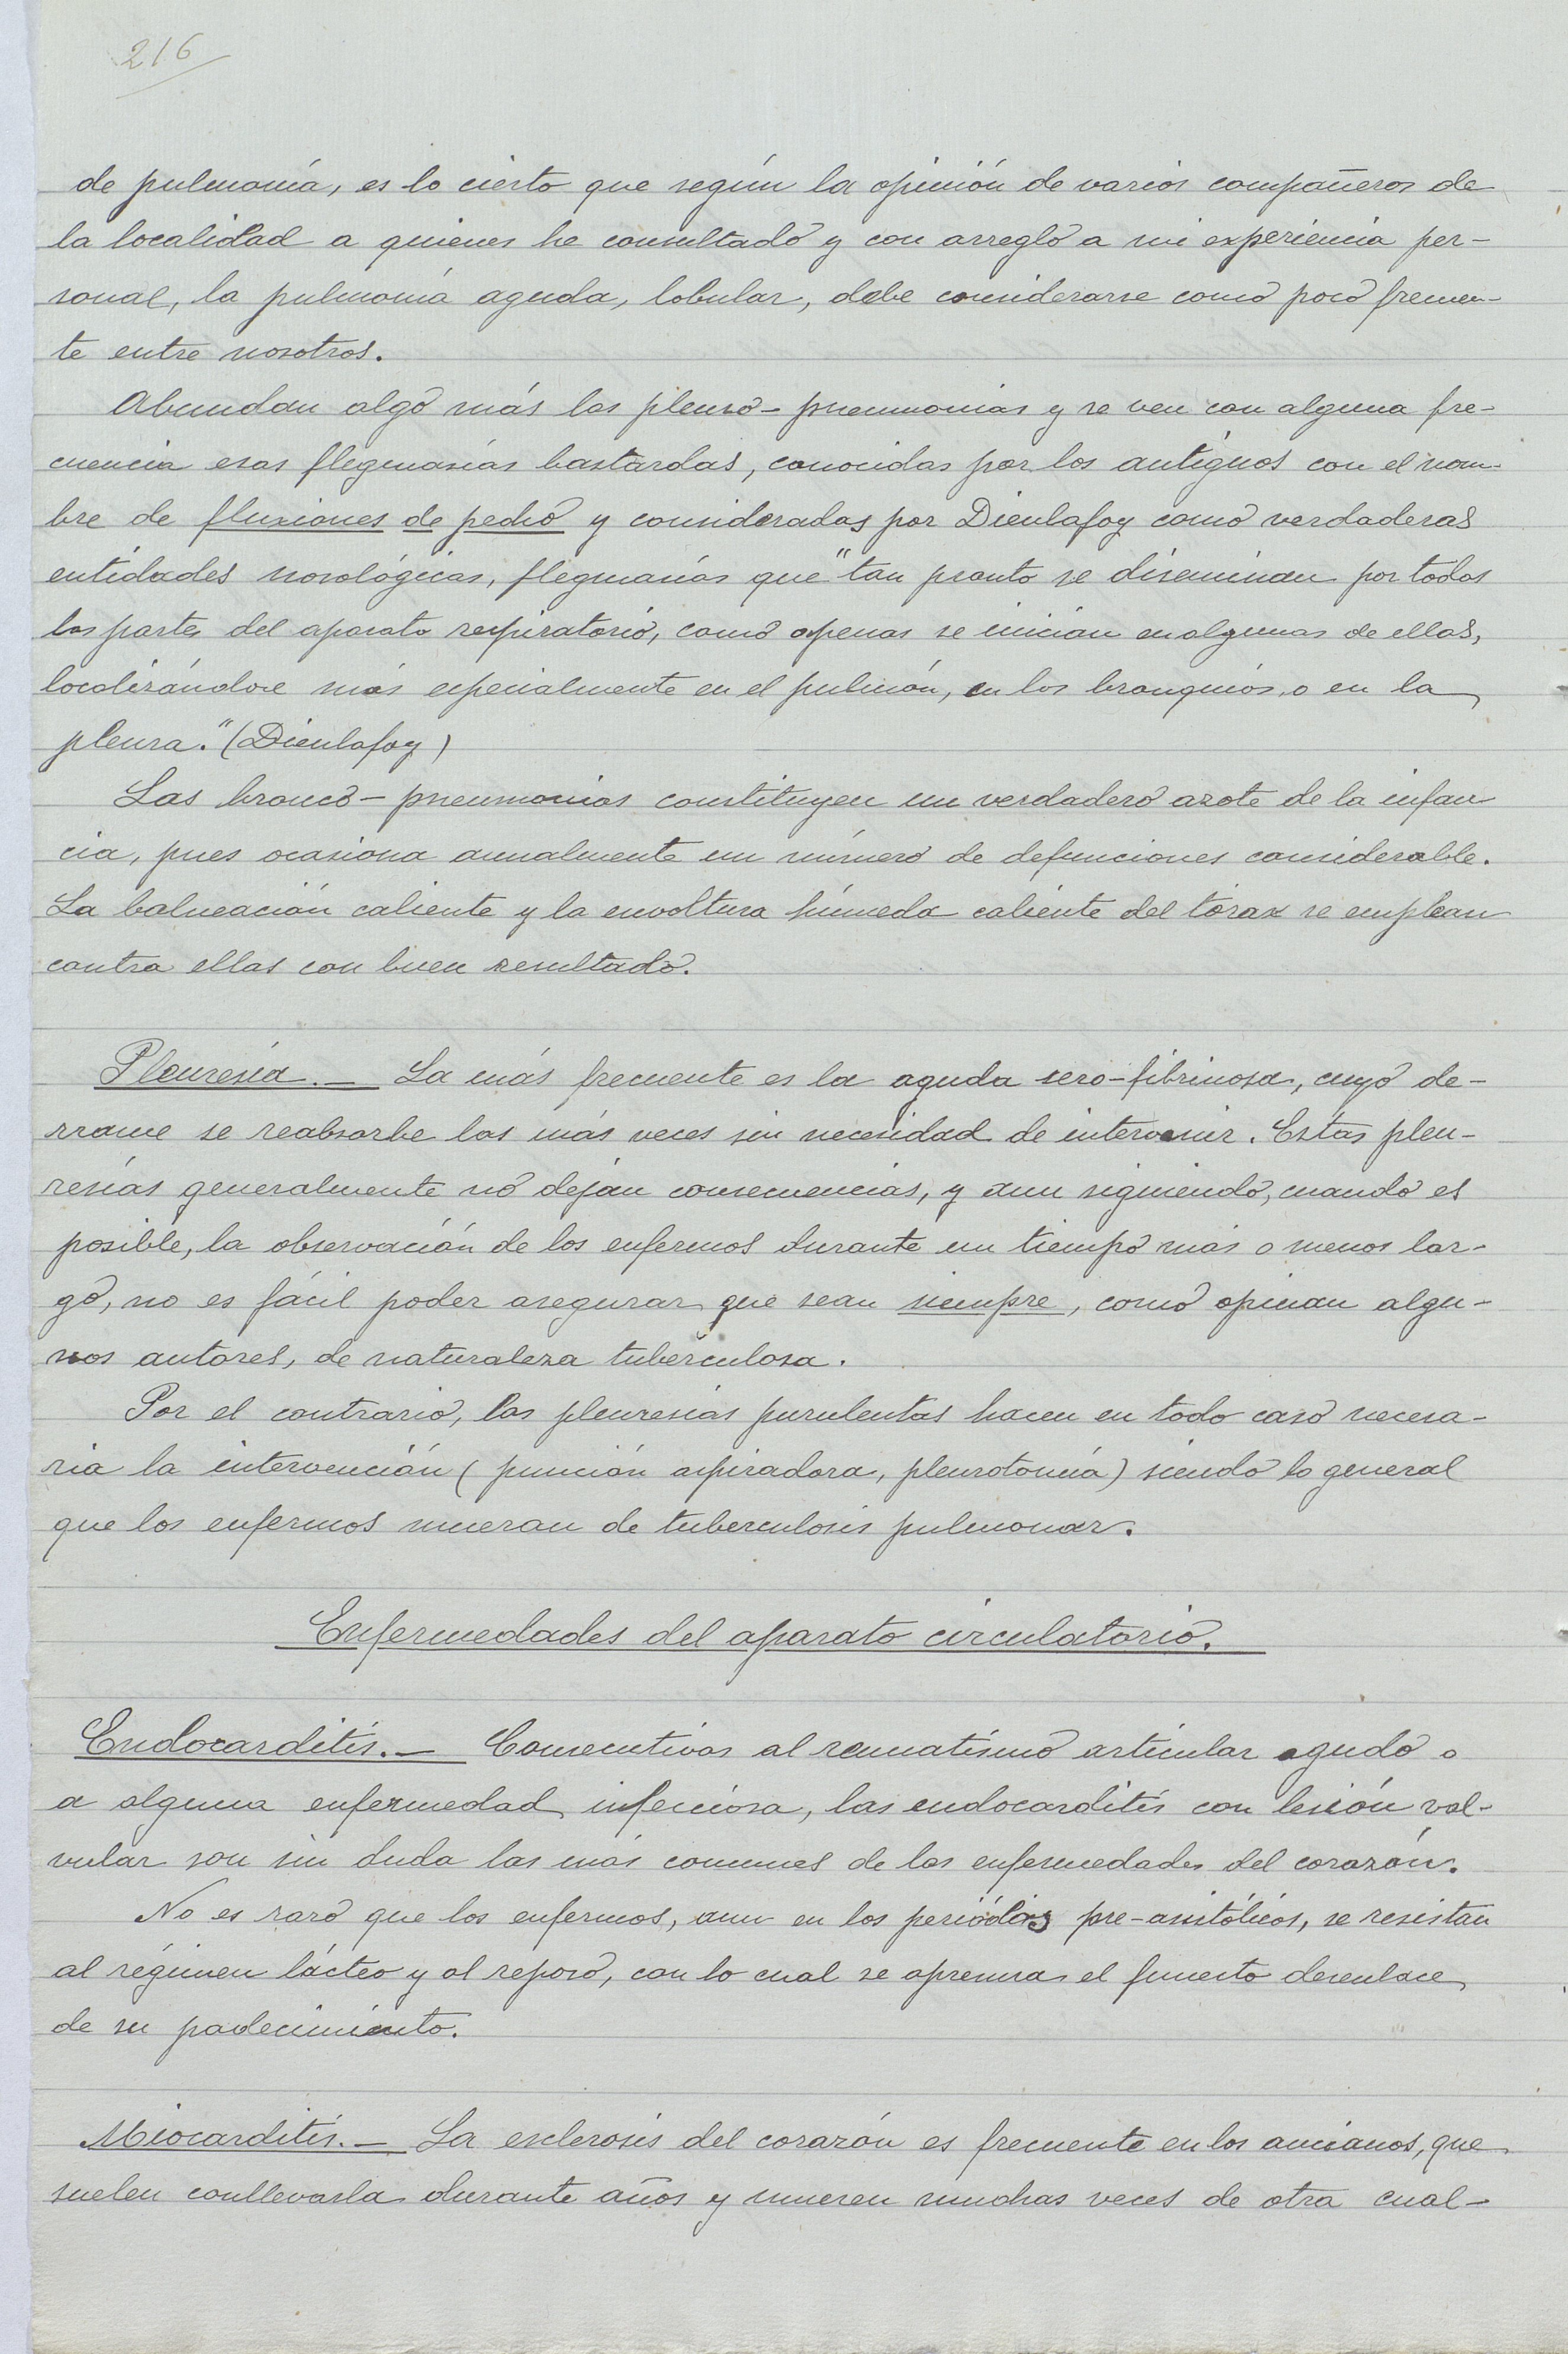 216
de pulmonía, es lo cierto que según la opinión de varios compañeros de
la localidad a quienes he consultado y con arreglo a mi experiencia per-
sonal, la pulmonía aguda, lobular, debe considerarse como poco frecuen-
te entre nosotros.
Abundan algo más las pleuro-pneumonias y se ven con alguna fre-
cuencia esas flegmasías bastardas, conocidas por los antiguos con el nom-
bre de fluxiones de pecho y consideradas por Dieulafoy como verdaderas
entidades nosológicas, flegmasías que "tan pronto se diseminan por todas
las partes del aparato respiratorio, como apenas se inician en algunas de ellas,
localizándose más especialmente en el pulmón, en los bronquios, o en la
pleura." (Dieulafoy)
Las bronco-pneumonias constituyen un verdadero azote de la infan
cia, pues ocasiona anualmente un número de defunciones considerable.
La balneación caliente y la envoltura húmeda caliente del tórax se emplean
contra ellas con buen resultado.
Pleuresía.- La más frecuente es la aguda sero-fibrinosa, cuyo de-
rrame se reabsorbe las más veces sin necesidad de intervenir. Estas pleu-
resías generalmente no dejan consecuencias, y aun siguiendo, cuando es
posible, la observación de los enfermos durante un tiempo más o menos lar-
go, no es fácil poder asegurar que sean siempre, como opinan algu-
nos autores, de naturaleza tuberculosa.
Por el contrario, las pleuresías purulentas hacen en todo caso necesa-
ria la intervención (punción aspiradora, pleurotomía) siendo lo general
que los enfermos mueran de tuberculosis pulmonar.
Enfermedades del aparato circulatorio.
Endocarditis.- Consecutivas al reumatismo articular agudo o
a alguna enfermedad infecciosa, las endocarditis con lesión val-
vular son sin duda las más comunes de las enfermedades del corazón.
No es raro que los enfermos, aun en los periodos pre-asistólicos, se resistan
al régimen lácteo y al reposo, con lo cual se apresura el funesto desenlace
de su padecimiento.
Miocarditis.- La esclerosis del corazón es frecuente en los ancianos, que
suelen conllevarla durante años y mueren muchas veces de otra cual-